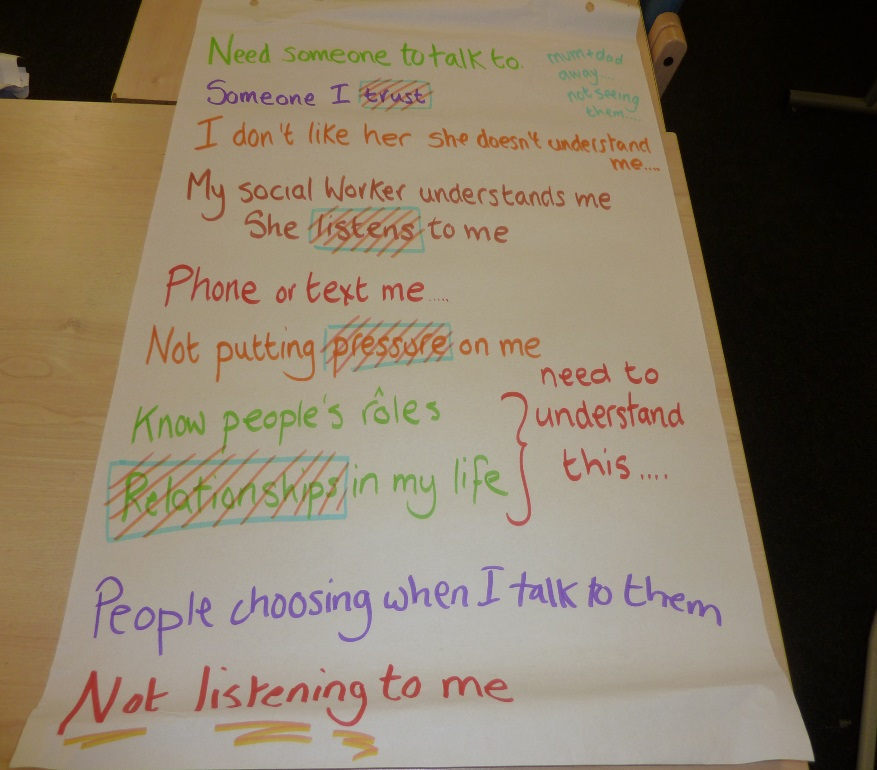 Need someone to talk to.
mum+dad
away....
not seeing
them....
Someone I trust
I don't like her she doesn't understand
me....
My social Worker understands me
She listens to me
Phone or text me.....
Not putting pressure on me
Know people's rôles
Relationships in my life
need to
understand
this....
People choosing when I talk to them
Not listening to me